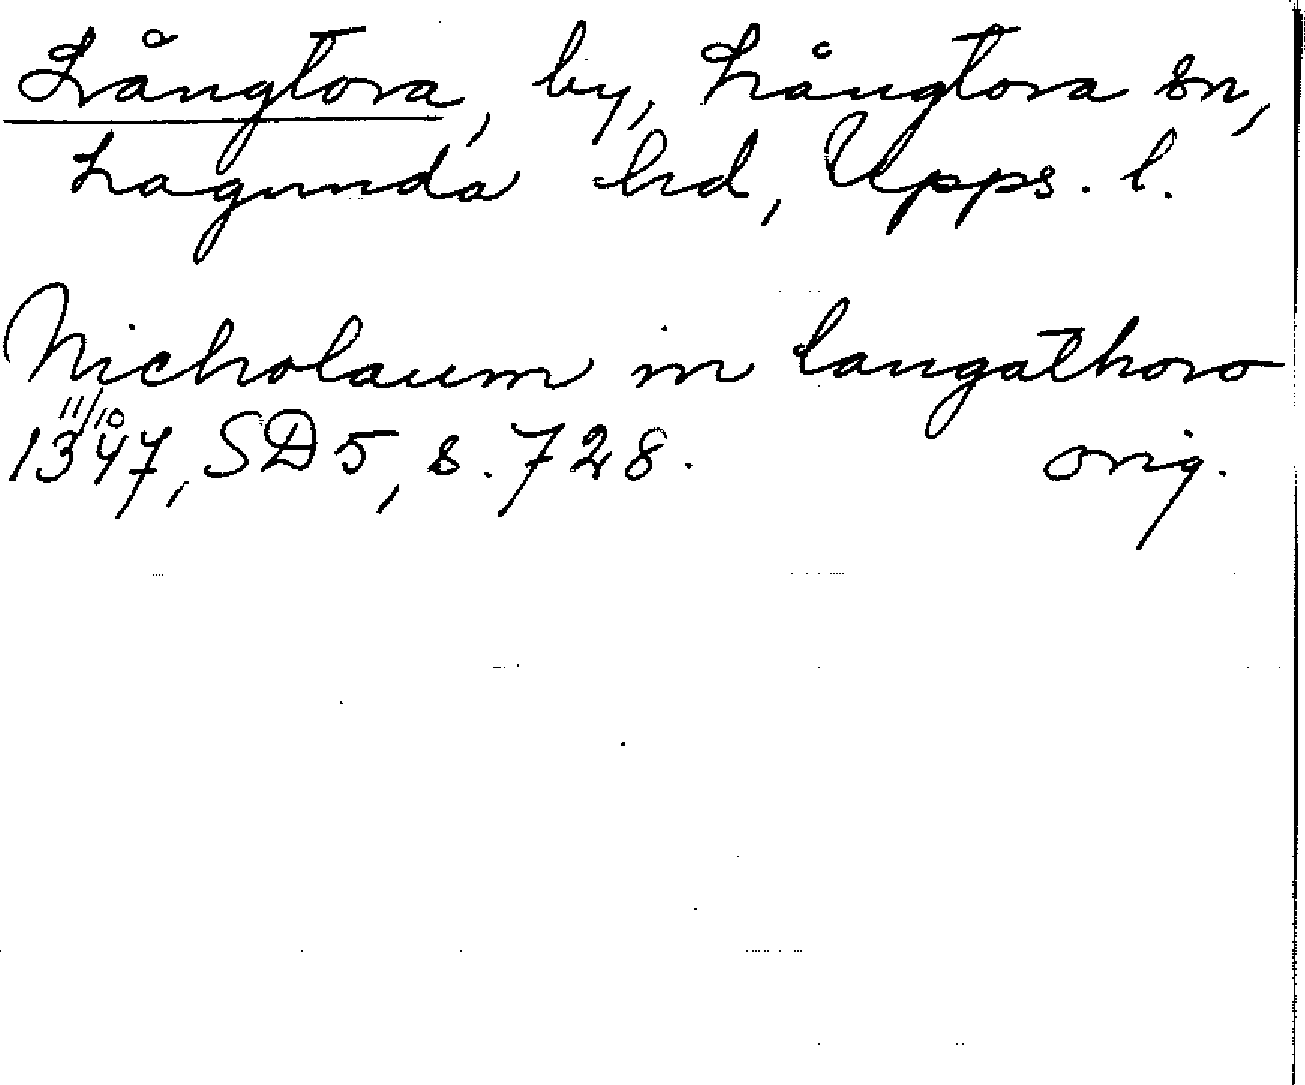 Långtora, by, Långtora sn,
Lagunda hd, Upps. l.
Nicholaum in langathoro
11/10
1347, SD 5, s. 728. orig.